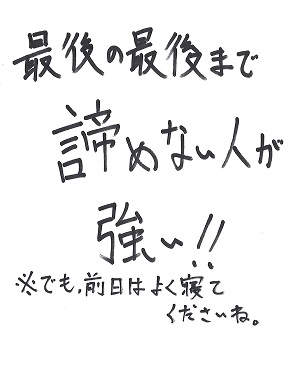 最後の最後まで
諦めない人が
強い!!
※でも,前日はよく寝て
くださいね。